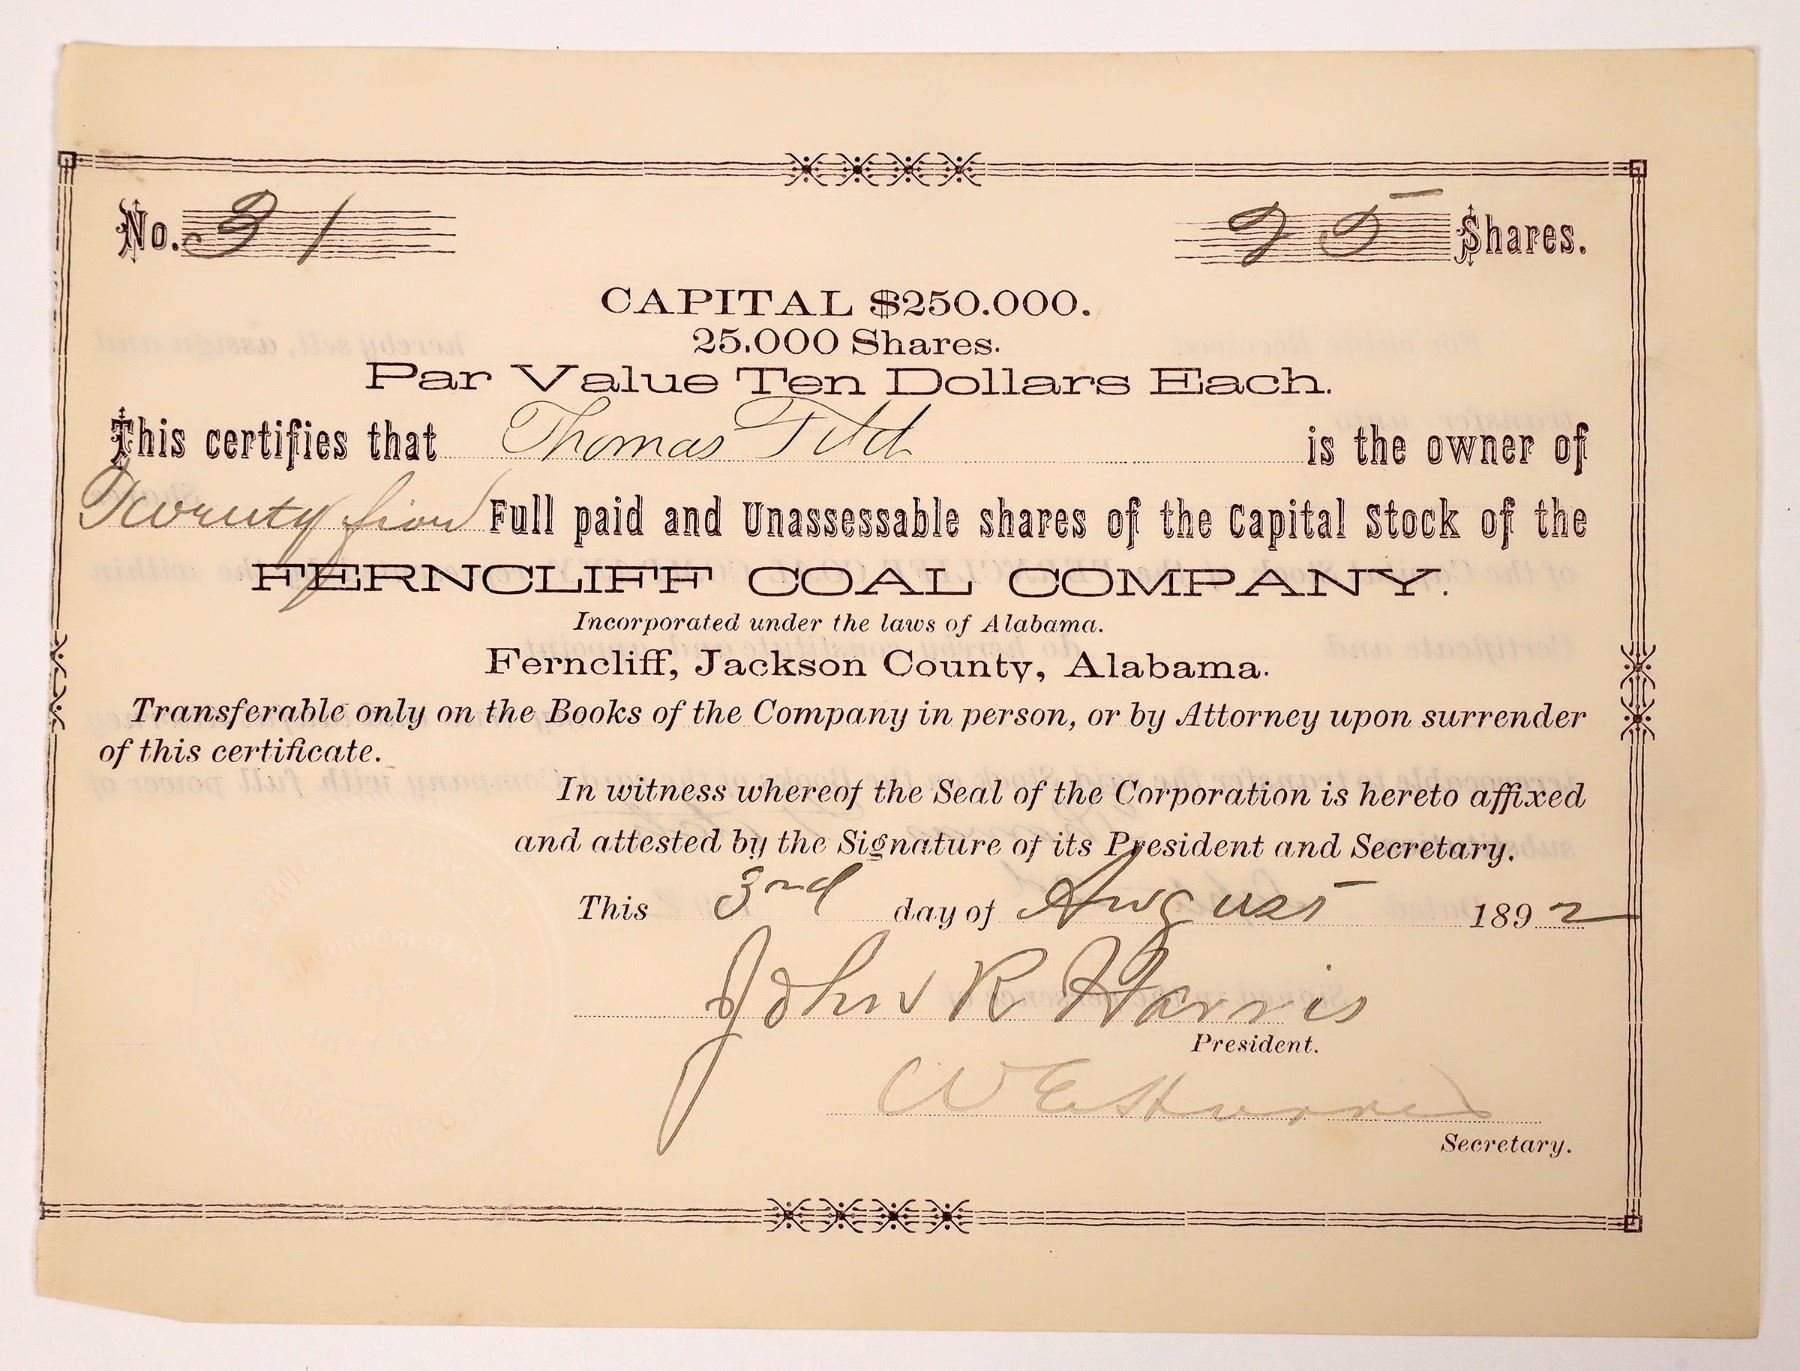 No. 31 25 Shares.
CAPITAL $250.000.
25.000 Shares.
Par Value Ten Dollars Each.
This certifies that Thomas Tidd is the owner of
Twenty five Full paid and Unassessable shares of the Capital Stock of the
FERNCLIFF COAL COMPANY.
Incorporated under the laws of Alabama.
Ferncliff, Jackson County, Alabama.
Transferable only on the Books of the Company in person, or by Attorney upon surrender
of this certificate.
In witness whereof the Seal of the Corporation is hereto affixed
and attested by the Signature of its President and Secretary.
This 3rd day of August 1892
John R Harris
President.
W E Harris
Secretary.